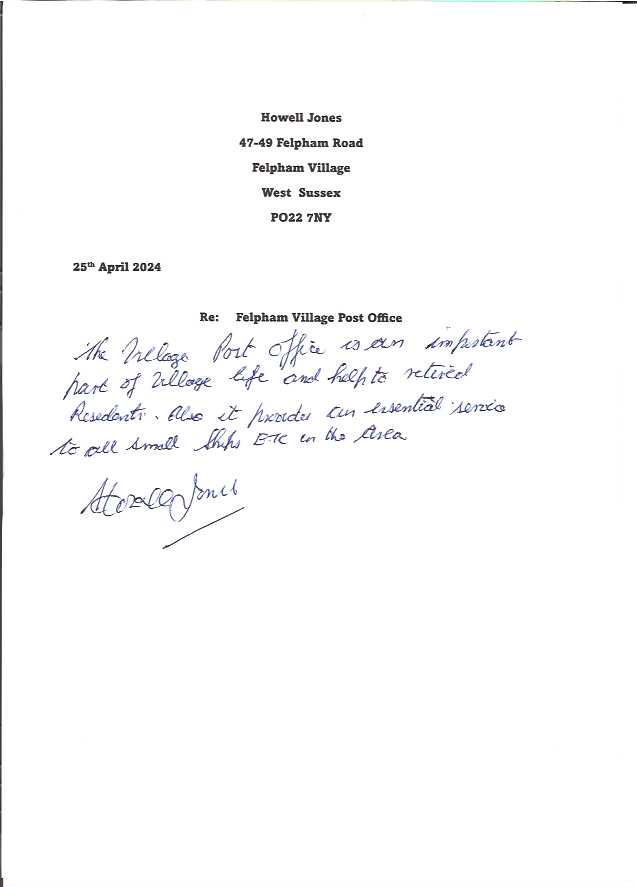 Howell Jones
47-49 Felpham Road
Felpham Village
West Sussex
PO22 7NY
25th April 2024
Re: Felpham Village Post Office
The Village Post Office is an impotant
part of Village life and help to retired
Resedents. Also it provides an essential service
to all small Shops ETC in the Area
Howell Jones